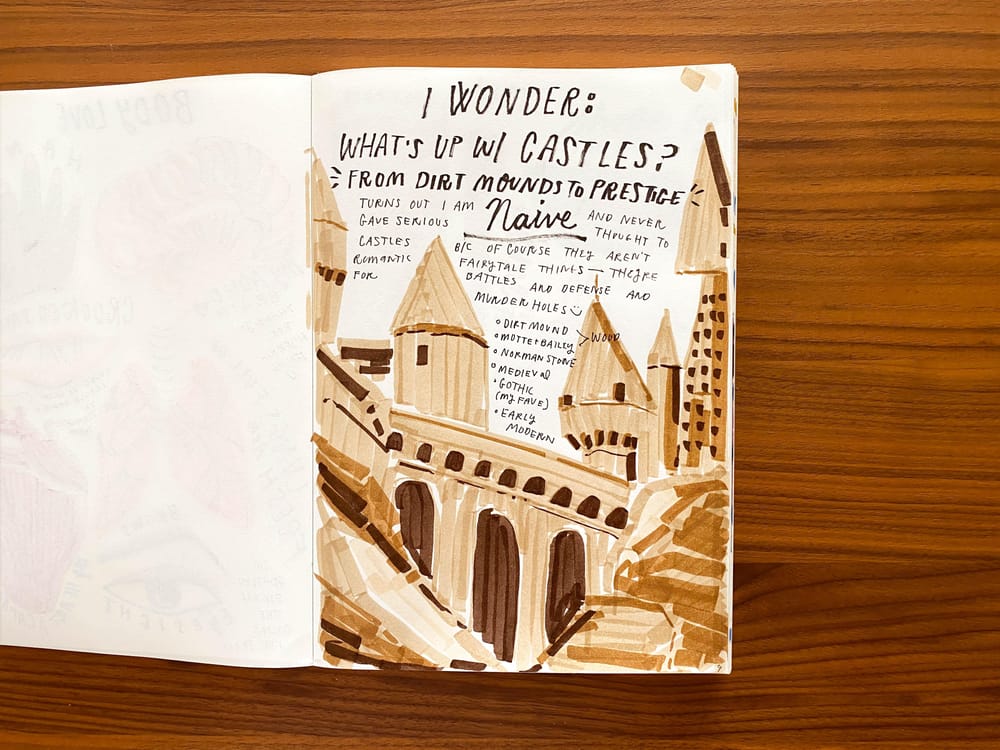 BODY LOVE
I WONDER:
WHAT'S UP W/ CASTLES?
FROM DIRT MOUNDS TO PRESTIGE
TURNS OUT I AM Naive AND NEVER
GAVE SERIOUS THOUGHT TO
CASTLES B/C OF COURSE THEY AREN'T
ROMANTIC FAIRYTALE THINGS — THEY'RE
FOR BATTLES AND DEFENSE AND
MURDER HOLES
• DIRT MOUND
• MOTTE + BAILEY > WOOD
• NORMAN STONE
• MEDIEVAL
• GOTHIC
(MY FAVE)
• EARLY
MODERN